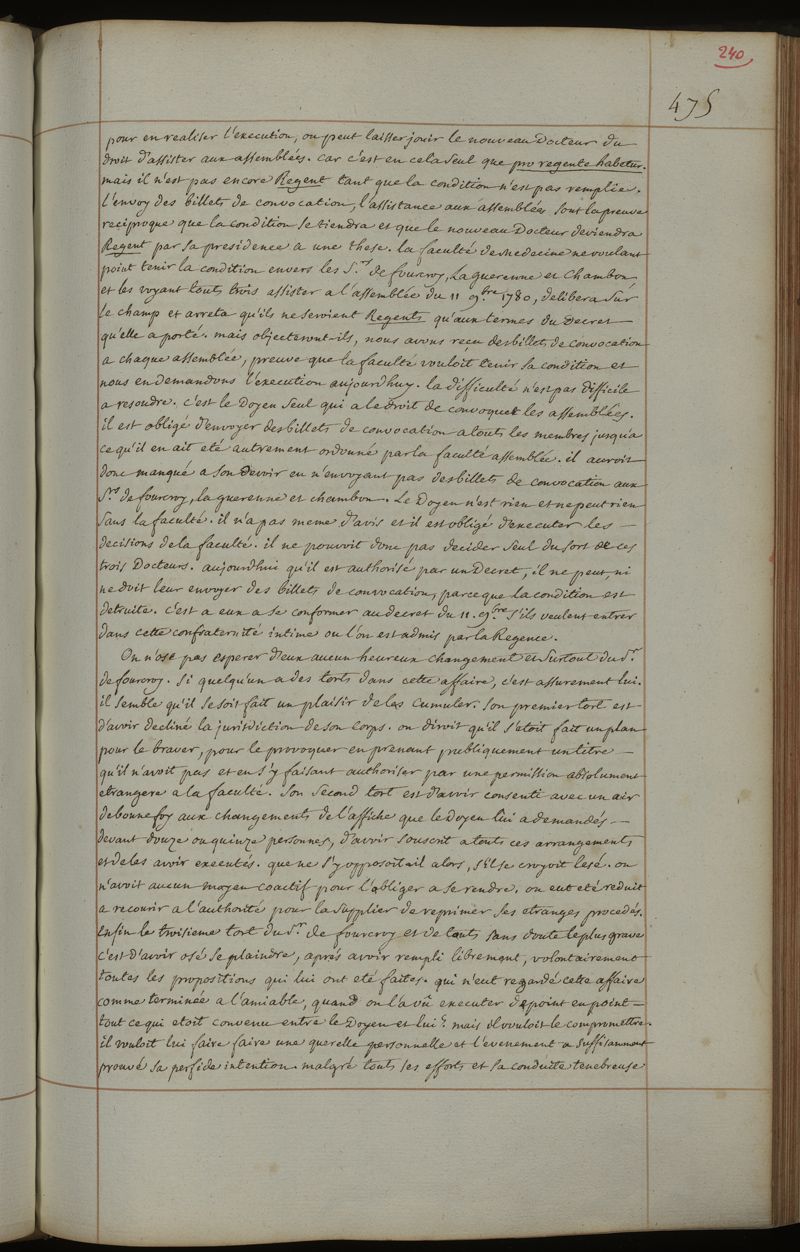 240
475
pour en realiser l'execution, on peut laisser jouir le nouveau Docteur du
droit d'assister aux assemblées. car c'est en cela seul que pro regente habetur.
mais il n'est pas encore Regent tant que la condition n'est pas remplie.
l'envoy des billets de convocation, l'assistance aux assemblées sont la preuve
reciproque que la condition se tiendra et que le nouveau Docteur deviendra
Regent par sa presidence a une these. la faculté de Medecine ne voulant
point tenir la condition envers les S.rs de fourcroy, Laguerenne et Chambon,
et les voyant touts trois assister a l'assemblée du 11 9.bre 1780, delibera sur
le champ et arreta qu'ils ne seroient Regents qu'aux termes du Decret
qu'elle a porté. mais objecteront-ils, nous avons reçu des billets de convocation
a chaque assemblée, preuve que la faculté vouloit tenir sa condition et
nous en demandons l'execution aujourd'huy. la difficulté n'est pas difficile
a resoudre. c'est le Doyen seul qui a le droit de convoquer les assemblées.
il est obligé d'envoyer des billets de convocation a touts les membres jusqu'a
ce qu'il en ait eté autrement ordonné par la faculté assemblée. il auroit
donc manqué a son devoir en n'envoyant pas des billets de convocation aux
S.rs de fourcroy, la guerenne et chambon. Le Doyen n'est rien et ne peut rien
sans la faculté. il n'a pas meme d'avis et il est obligé d'executer les
decisions de la faculté. il ne pouvoit donc pas decider seul du sort de ces
trois Docteurs. aujourd'hui qu'il est authorisé par un Decret, il ne peut, ni
ne doit leur envoyer des billets de convocation, parce que la condition est
detruite. c'est a eux a se conformer au decret du 11. 9.bre s'ils veulent entrer
dans cette confraternité intime ou l'on est admis par la Regence.
On n'ose pas esperer d'eux aucun heureux changement et surtout du S.r
de fourcroy. si quelqu'un a des torts dans cette affaire, c'est assurement lui.
il semble qu'il se soit fait un plaisir de les cumuler. son premier tort est
d'avoir decliné la jurisdiction de son corps. on diroit qu'il s'etoit fait un plan
pour le braver, pour le provoquer en prenant publiquement un titre
qu'il n'avoit pas et en s'y faisant authoriser par une permission absolument
etrangere a la faculté. son second tort est d'avoir consenti avec un air
de bonne foy aux changements de l'affiche que le Doyen lui a demandés
devant douze ou quinze personnes, d'avoir souscrit a touts ces arrangements
et de les avoir executés. que ne s'y opposoit-il alors, s'il se croyoit lesé. on
n'avoit aucun moyen coactif pour l'obliger a se rendre. on eut eté reduit
a recourir a l'authorité pour la supplier de reprimer ses etranges procedés.
enfin le troisieme tort du S.r de fourcroy et de touts sans doute le plus grave
c'est d'avoir osé se plaindre, après avoir rempli librement, volontairement
toutes les propositions qui lui ont eté faites. qui n'eut regardé cette affaire
comme terminée a l'amiable, quand on l'a vû executer de point en point
tout ce qui etoit convenu entre le Doyen et lui? mais il vouloit le compromettre.
il vouloit lui faire faire une querelle personnelle et l'evenement a suffisamment
prouvé sa perfide intention. malgré touts ses efforts et sa conduite tenebreuse